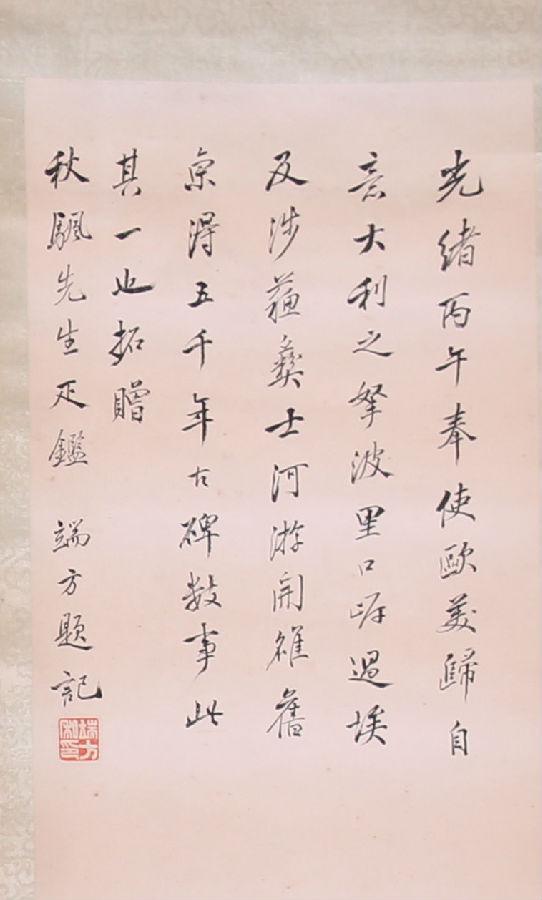 光緒丙午奉使歐美歸自
意大利之拏波里口岸過埃
及涉蘇彝士河游開雒舊
京得五千年古碑數事此
其一也拓贈
秋颿先生疋鑑 端方題記
端方